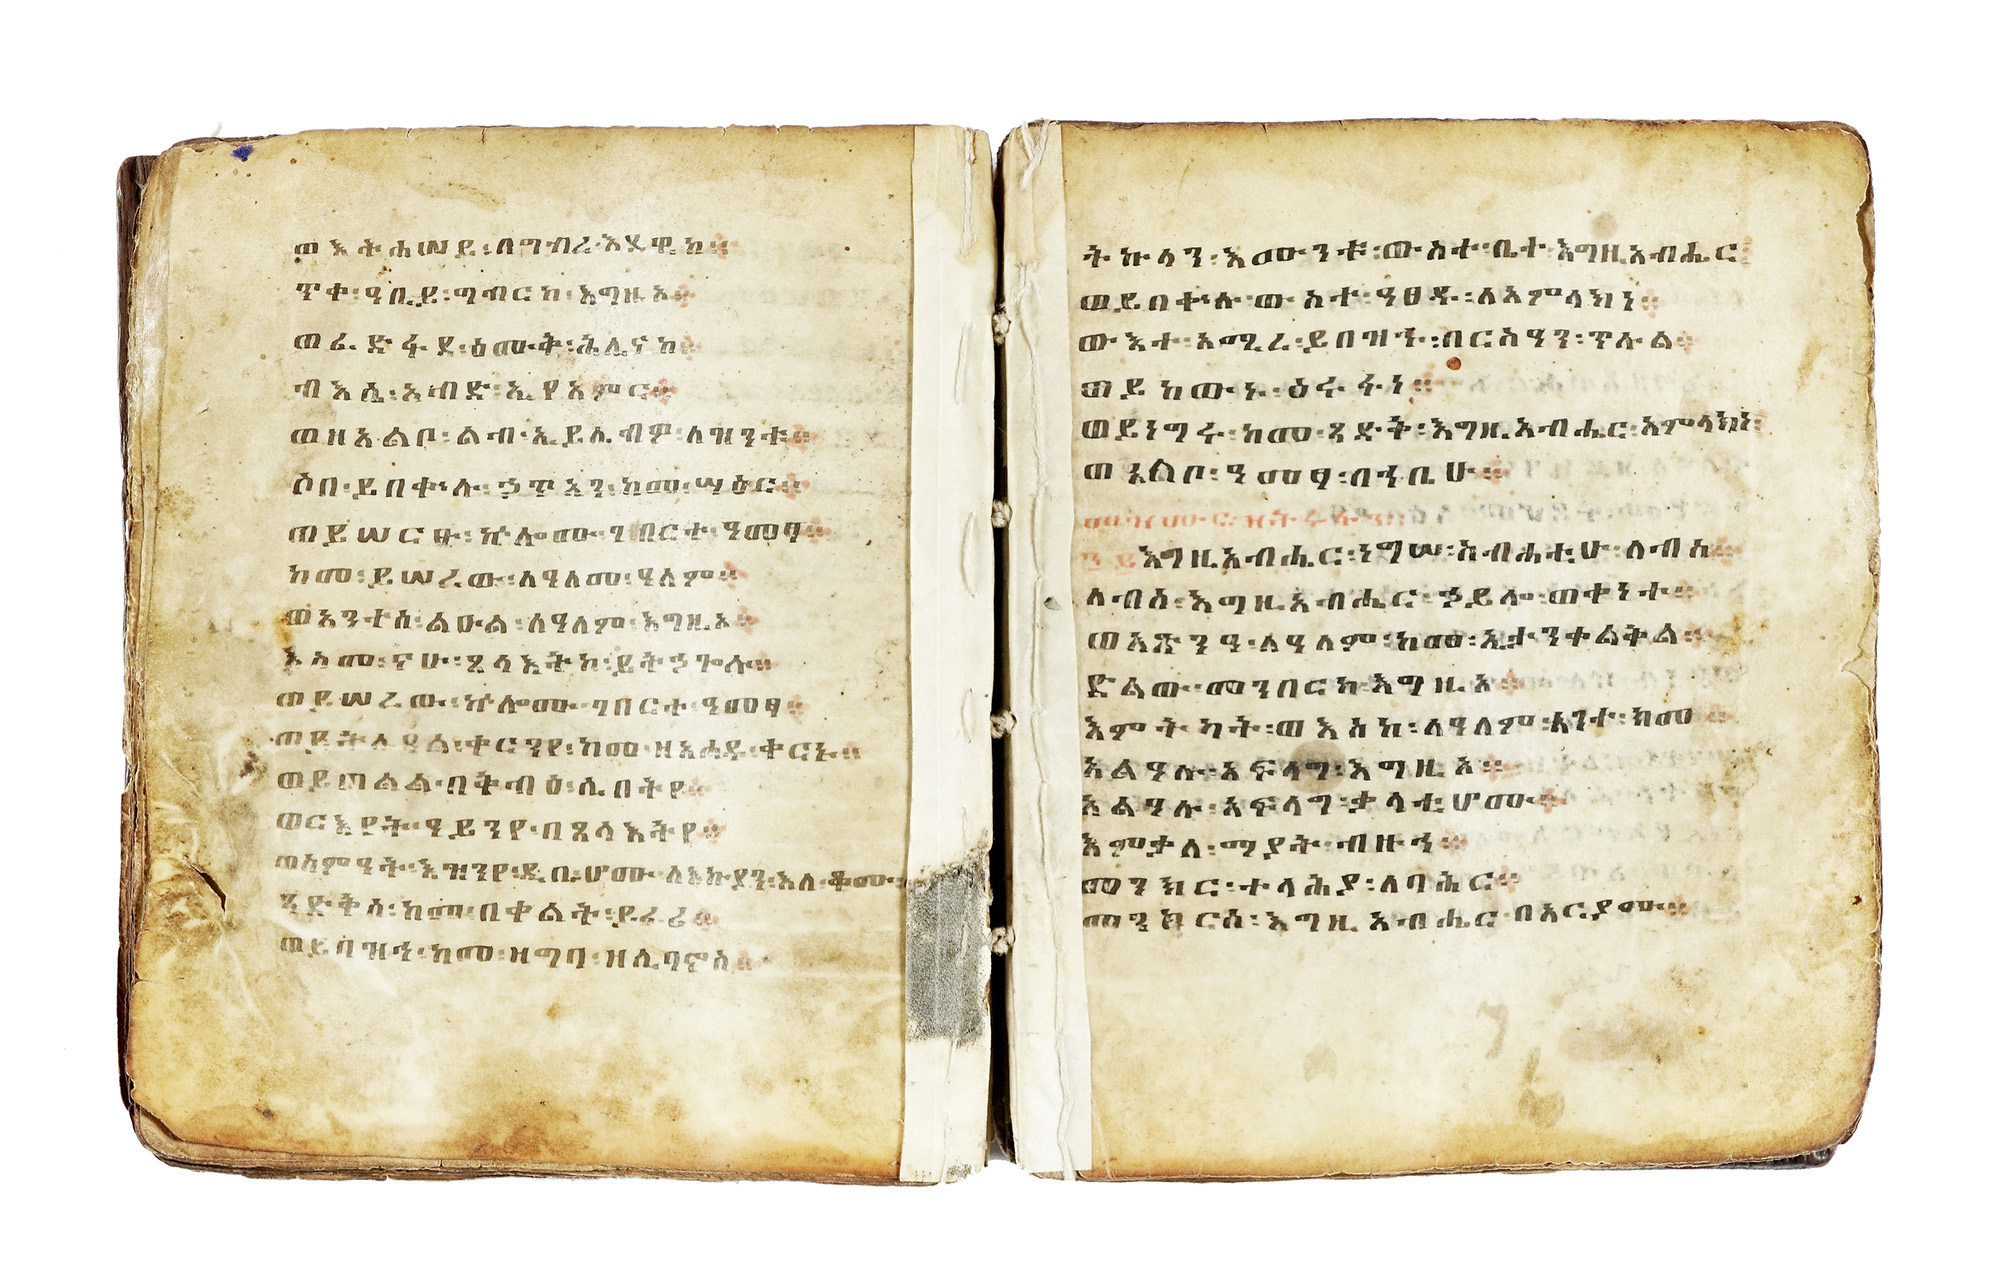 ወእትሐሠይ፡በግብረ፡እደዊከ።
ጥቀ፡ዓቢይ፡ግብርከ፡እግዚኦ።
ወፈድፋደ፡ዕሙቅ፡ሕሊናከ።
ብእሲ፡አብድ፡ኢየአምር።
ወዘአልቦ፡ልብ፡ኢይሌብዎ፡ለዝንቱ።
ሶበ፡ይበቍሉ፡ኃጥአን፡ከመ፡ሣዕር።
ወይሠርፁ፡ኵሎሙ፡ገበርተ፡ዓመፃ።
ከመ፡ይሠረው፡ለዓለመ፡ዓለም።
ወአንተሰ፡ልዑል፡ለዓለም፡እግዚኦ።
እስመ፡ናሁ፡ጸላእትከ፡ይትኃጐሉ።
ወይሠረው፡ኵሎሙ፡ገበርተ፡ዓመፃ።
ወይትሌዓል፡ቀርንየ፡ከመ፡ዘአሐዱ፡ቀርኑ።
ወይጠልል፡በቅብዕ፡ሲበትየ።
ወርእየት፡ዓይንየ፡በጸላእትየ።
ወሰምዓት፡እዝንየ፡ዲቤሆሙ፡ለእኩያን፡እለ፡ቆሙ፡
ጻድቅሰ፡ከመ፡በቀልት፡ይፈሪ።
ወይበዝኅ፡ከመ፡ዘግባ፡ዘሊባኖስ።
ትኩላን፡እሙንቱ፡ውስተ፡ቤተ፡እግዚአብሔር
ወይበቍሉ፡ውስተ፡ዓፀዱ፡ለአምላክነ።
ውእተ፡አሚረ፡ይበዝኁ፡በርስዓን፡ጥሉል
ወይከውኑ፡ዕሩፋነ።
ወይነግሩ፡ከመ፡ጻድቅ፡እግዚአብሔር፡አምላክነ።
ወአልቦ፡ዓመፃ፡በኀቤሁ።
እግዚአብሔር፡ነግሠ፡ስብሐቲሁ፡ለብሰ
ለብሰ፡እግዚአብሔር፡ኃይሎ፡ወቀነተ።
ወአጽንዓ፡ለዓለም፡ከመ፡ኢታንቀልቅል።
ድልው፡መንበርከ፡እግዚኦ።
እምትካት፡ወእስከ፡ለዓለም፡አንተ፡ክመ
አልዓሉ፡አፍላግ፡እግዚኦ።
አልዓሉ፡አፍላግ፡ቃላቲሆሙ።
እምቃለ፡ማያት፡ብዙኅ።
መንክር፡ተላሕያ፡ለባሕር።
መንክርሰ፡እግዚአብሔር፡በአርያሙ።